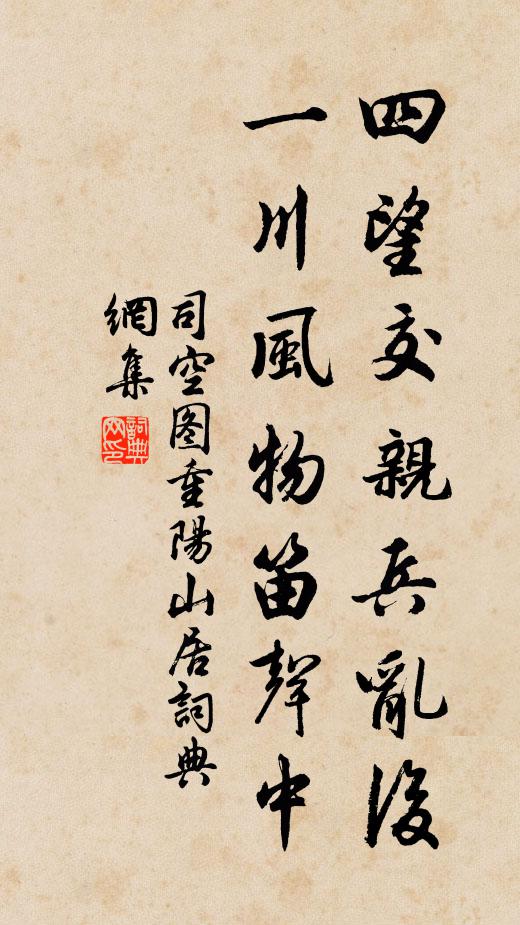 四望交親兵亂後
一川風物笛聲中
司空图重陽山居詞典
網集
詞典
网印